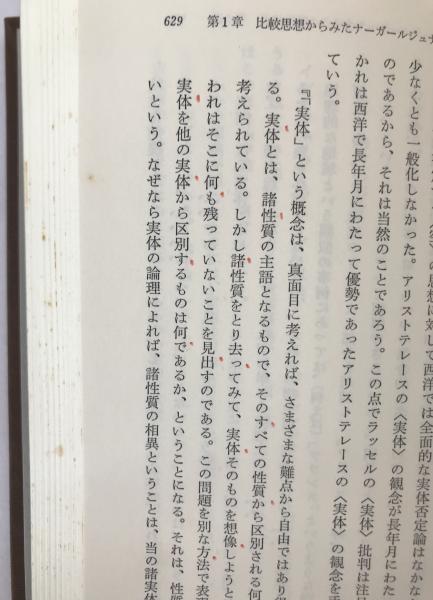 629　第1章　比較思想からみたナーガールジュナ
の思想に対して西洋では全面的な実体否定論はなかな
少なくとも一般化しなかった。アリストテレースの〈実体〉の観念が長年月にわた
のであるから、それは当然のことであろう。この点でラッセルの〈実体〉批判は注目
かれは西洋で長年月にわたって優勢であったアリストテレースの〈実体〉の観念を
ていう。
『「実体」という概念は、真面目に考えれば、さまざまな難点から自由ではあり得
る。実体とは、諸性質の主語となるもので、そのすべての性質から区別される何
考えられている。しかし諸性質をとり去ってみて、実体そのものを想像しようと
われはそこに何も残っていないことを見出すのである。この問題を別な方法で表現
実体を他の実体から区別するものは何であるか、ということになる。それは、性質
いという。なぜなら実体の論理によれば、諸性質の相異ということは、当の諸実体